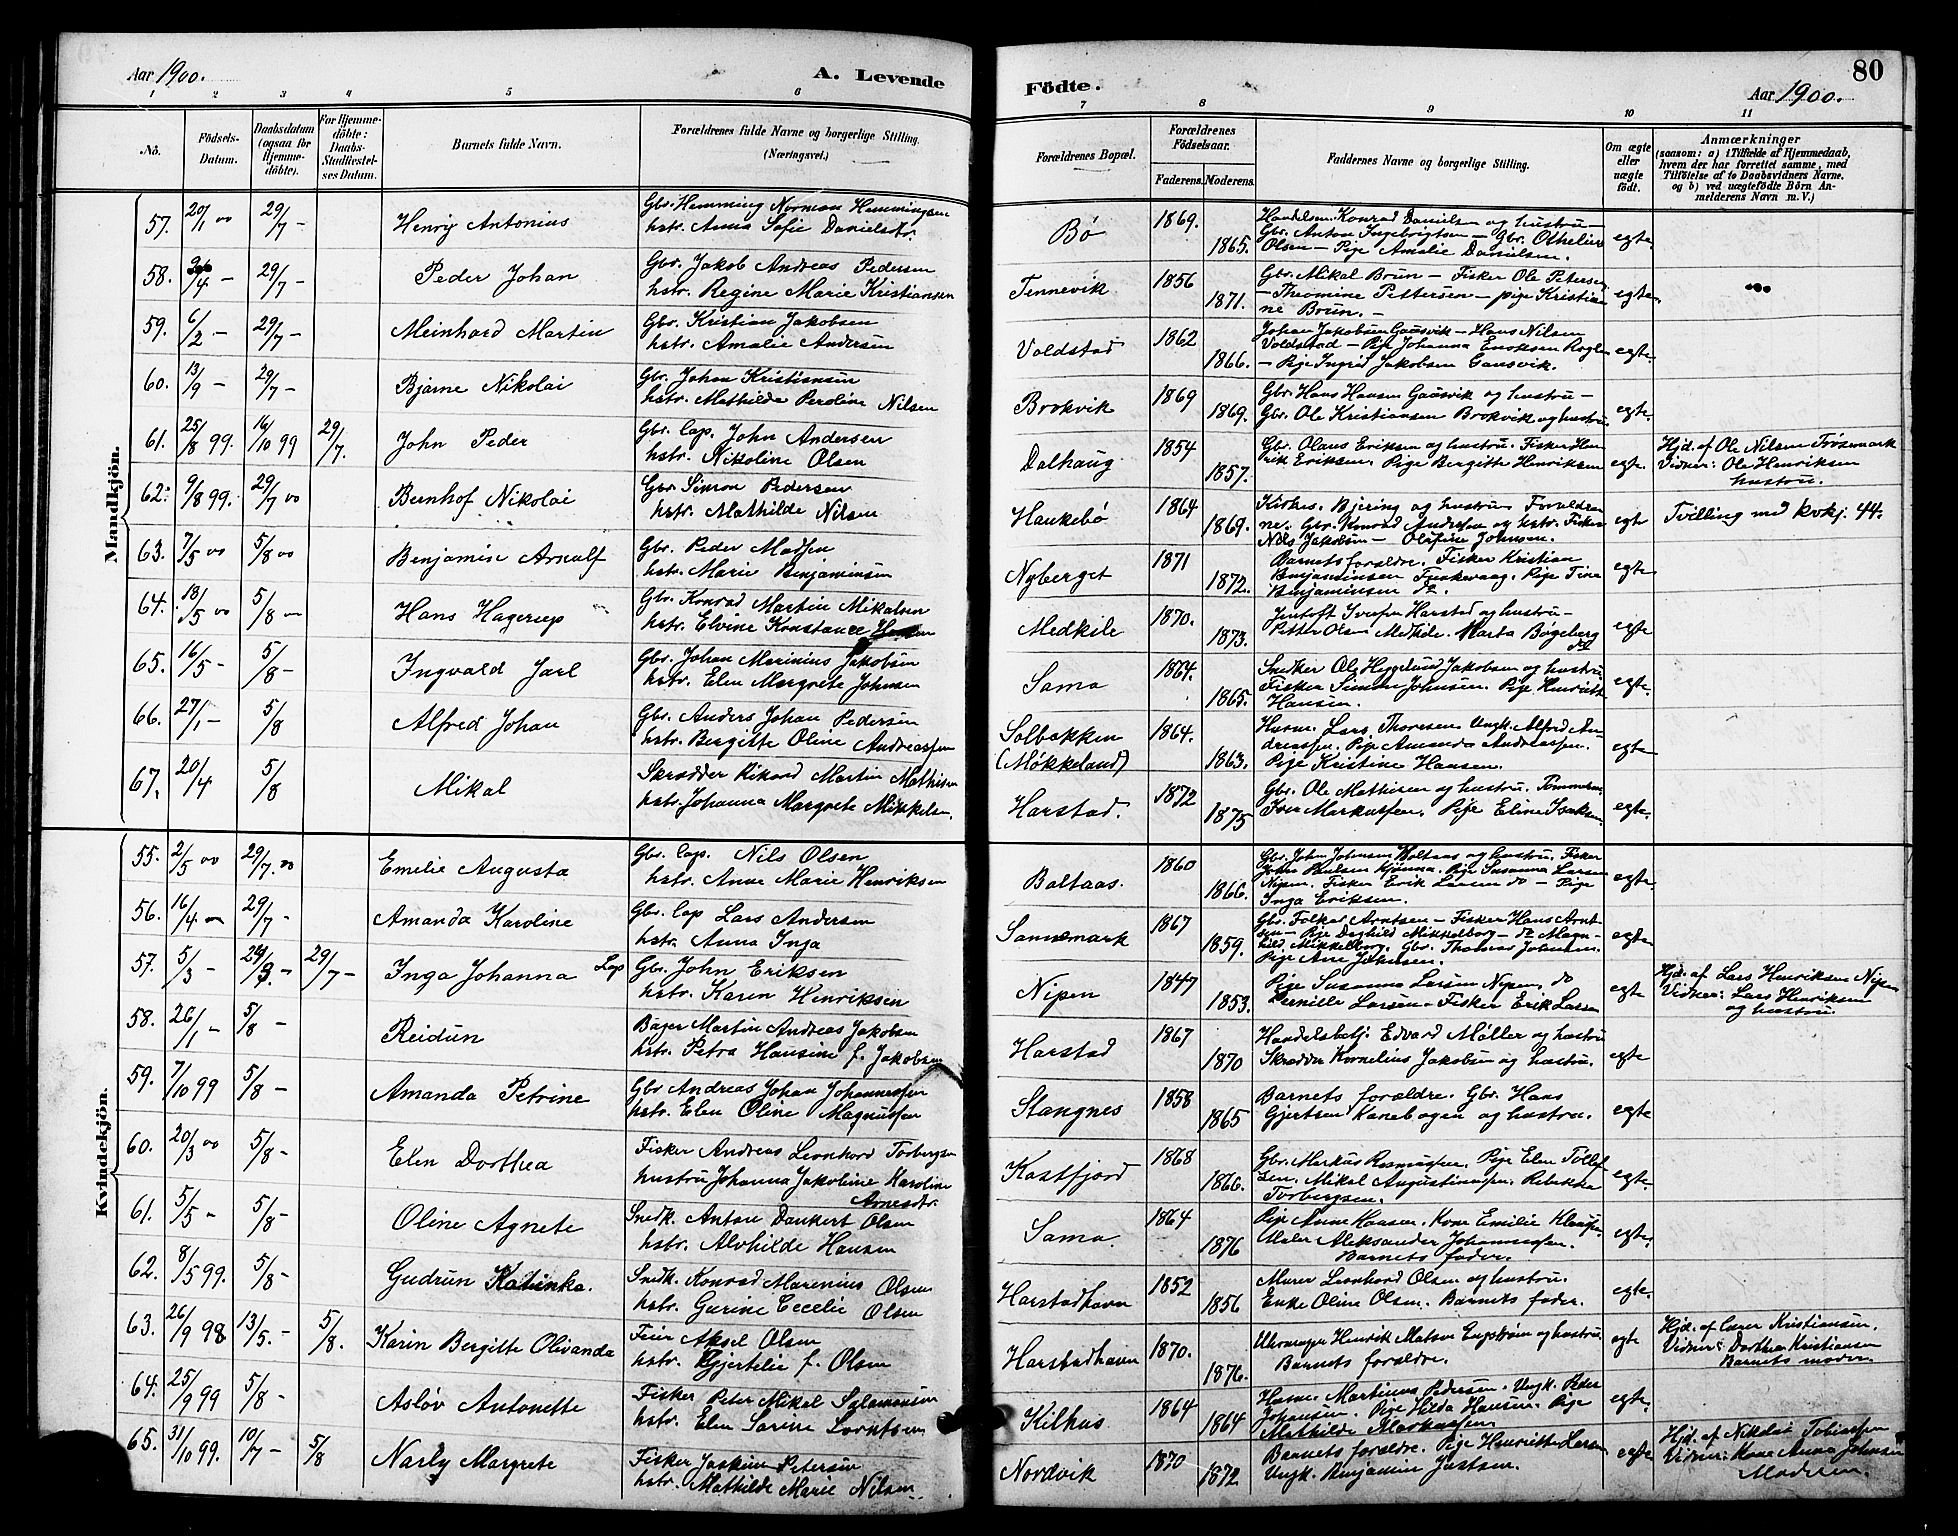 Aar 1900.
A. Levende
Födte.
80
Aar 1900.
1 2 3 4 5 6 7 8 9 10 11
No.
Födsels-Datum.
Daabsdatum (ogsaa for Hjemmedöbte).
For Hjemmedöbte: Daabs-Stadfæstelses Datum.
Barnets fulde Navn.
Forældrenes fulde Navne og borgerlige Stilling. (Næringsvei.)
Forældrenes Bopæl.
Forældrenes Födselsaar.
Faderens. Moderens.
Faddernes Navne og borgerlige Stilling.
Om ægte eller uægte födt.
Anmærkninger
(saasom: a) i Tilfælde af Hjemmedaab, hvem der har forrettet samme, med Tilföielse af to Daabsvidners Navne, og b) ved uægtefödte Börn Anmelderens Navn m. V.)
Mandkjön.
57. 20/1 00 29/7 - Henrij Antonius Gbr. Hemming Norman Hemmingsen
hstr. Anna Sofie Danielsdtr. Bø 1869. 1865. Handelsm. Konrad Danielsen og hustru -
Gbr. Anton Ingebrigtsen - Gbr. Othelius
Olsen - Pige Amalie Danielsen. egte
58. 4 - 29/7 - Peder Johan Gbr. Jakob Andreas Pedersen
hstr. Regine Marie Kristiansen Tennevik 1856 1871. Gbr. Mikal Brun - Fisker Ole Petersen
- Theomine Pettersen - pige Kristia-
ne Brun. - egte
59. 6/2 - 29/7 - Meinhard Martin Gbr. Kristian Jakobsen
hstr. Amalie Andersen Voldstad 1862 1866. Johan Jakobsen Gausvik - Hans Nilsen
Voldstad - Pige Johanna Enoksen
- Pige Ingrid Jakobsen Gausvik. egte
60. 13/9 - 29/7 - Bjarne Nikolai Gbr. Johan Kristiansen
hstr. Mathilde Peroline Nilsen Brokvik 1869 1869. Gbr. Hans Hansen Gausvik og hustru -
Gbr. Ole Kristiansen Brokvik og hustru egte
61. 25/8 99. 16/10 99 29/7. John Peder Gbr. lap. John Andersen
hstr. Nikoline Olsen Dalhaug 1854 1857. Gbr. Olaus Eriksen og hustru. Fisker Hen-
rik Eriksen. Pige Bergitte Henriksen egte Hjd. af Ole Nilsen
Vidner: Ole Henriksen
hustru.
62. 9/8 99. 29/7 00 Bernhof Nikolai Gbr. Simon Pedersen
hstr. Mathilde Nilsen Haukebø 1864 1869. Kirkes. Bjering og hustru Foraldre-
ne. Gbr. Konrad Andersen og hstr. Fisker
Nils Jakobsen - Olufine Johnsen. egte Tvilling med kvkj. 44.
63. 7/5 00 5/8 00 Benjamin Arnulf Gbr. Peder Madsen
hstr. Marie Benjaminsen Nyberget 1871 1872. Barnets foraldre. Fisker Kristian
Benjaminsen Pige Tine
Benjaminsen do. egte
64. 18/5 00 5/8 - Hans Hagerup Gbr. Konrad Martin Mikalsen
hstr. Elvine Konstance Medkile 1870. 1873. Jentoft Iversen Harstad og hustru -
Petter Olsen Medkile. Marta Bøgeberg egte
65. 16/5 - 5/8 - Ingvald Jarl Gbr. Johan Marinius Jakobsen
hstr. Elen Margrete Johnsen Sama 1864. 1865. Snedker Ole Jakobsen og hustru
Fisker Simon Johnsen. Pige Henriette
Hansen. egte.
66. 27/1 - 5/8 Alfred Johan Gbr. Anders Johan Pedersen
hstr. Bergitte Oline Andreassen Solbakken
(Møkkeland) 1864. 1863. Husm. Lars Thoresen Ungk. Alfred An-
dreassen. Pige Amanda Andreassen.
Pige Kristine Hansen. egte
67. 20/4 5/8 Mikal Skrædder Rikard Martin Mathisen
hstr. Johanna Margrete Mikkelsen. Harstad. 1872 1875 Gbr. Ole Mathisen og hustru. Tømmerm.
Iver Markussen. Pige Eline Isaksen. egte.
Kvindekjön.
55. 2/5 00 29/7. 00 Emilie Augusta Gbr. lap. Nils Olsen
hstr. Anne Marie Henriksen Boltaas. 1860 1866. Gbr. John Johnsen Boltaas og hustru. Fisker
John Paulsen Pige Susanna Larsen
Nipen. Fisker Erik Larsen do - Pige
Inga Eriksen. egte
56. 16/4 - 29/7 - Amanda Karoline Gbr. lap Lars Andersen
hstr. Anna Inga Sannemark 1867 1859. Gbr. Folker Arntsen - Fisker Hans Arnt-
sen - Pige Daghild Mikkelborg - do Magn-
hild Mikkelborg. Gbr. Thomas Johansen.
Pige Ane Johnsen. egte
57. 5/3 - 29/7 - Inga Johanna Lap Gbr. John Eriksen
hstr. Karen Henriksen Nipen 1847 1853. Pige Susanna Larsen Nipen. do
Pernille Larsen - Fisker Erik Larsen egte Hjd. af Lars Henriksen Nipen
Vidner: Lars Henriksen
og hustru.
58. 26/1 - 5/8 - Reidun Bager Martin Andreas Jakobsen
hstr. Petra Hansine f. Jakobsen Harstad 1867 1870 Handelsbetj. Edvard Møller og hustru
Skrædder Kornelius Jakobsen og hustru. egte
59. 7/10 99 5/8 - Amanda Petrine Gbr Andreas Johan Johannessen
hstr. Elen Oline Magnussen Stangnes 1858 1865 Barnets foraldre. Gbr. Hans
Gjertsen Kanebogen og hustru. egte
60. 20/3 00 5/8 - Elen Dorthea Fisker Andreas Leonhard Torbergsen
hustru Johanna Jakobine Karoline
Arnesdtr. Kastfjord 1868 1866. Gbr. Markus Rasmussen. Pige Elen Tollef-
sen. Mikal Augustinussen. Rebekka
Torbergsen. egte
61. 5/5 - 5/8 - Oline Agnete Snedk. Anton Dankert Olsen
hstr. Alvhilde Hansen Sama 1864 1876 Pige Anne Hansen. Kone Emilie Klausen.
Maler Aleksander Johannessen.
Barnets fader. egte.
62. 8/5 99. 5/8 - Gudrun Katinka. Snedk. Konrad Marenius Olsen
hstr. Gurine Cecelie Olsen Harstadhavn 1852 1856 Murer Leonhard Olsen og hustru.
Enke Oline Olsen. Barnets fader. egte.
63. 26/9 98 13/5. - 5/8. Karin Bergitte Olivanda Feier Aksel Olsen
hstr. Gjertelie f. Olsen Harstadhavn 1870. 1876. Uhrmager Henrik Matson Engstrøm og hustru.
Barnets foraldre. egte Hjd. af Kristiansen.
Vidner: Dorthea Kristiansen
Barnets moder.
64. 25/9 99 5/8 - Asløv Antonette Fisker Peter Mikal Salamonsen
hstr. Elen Sarine Lorntsen Kilhus 1864 1864 Husm. Martinus Pedersen. Ungk. Peder
Johansen. Pige Hilda Hansen. Pige
Mathilde Markussen egte.
65. 31/10 99. 10/7 - 5/8 Narly Margrete Fisker Joakim Petersen
hstr. Mathilde Marie Nilsen. Nordvik 1870 1872. Barnets foraldre. Pige Henriette Larsen
Ungk. Benjamin Justsen. egte Hjd. af Nikolai Tobiassen
Vidner: Kone Anna Johnsen
Madsen.